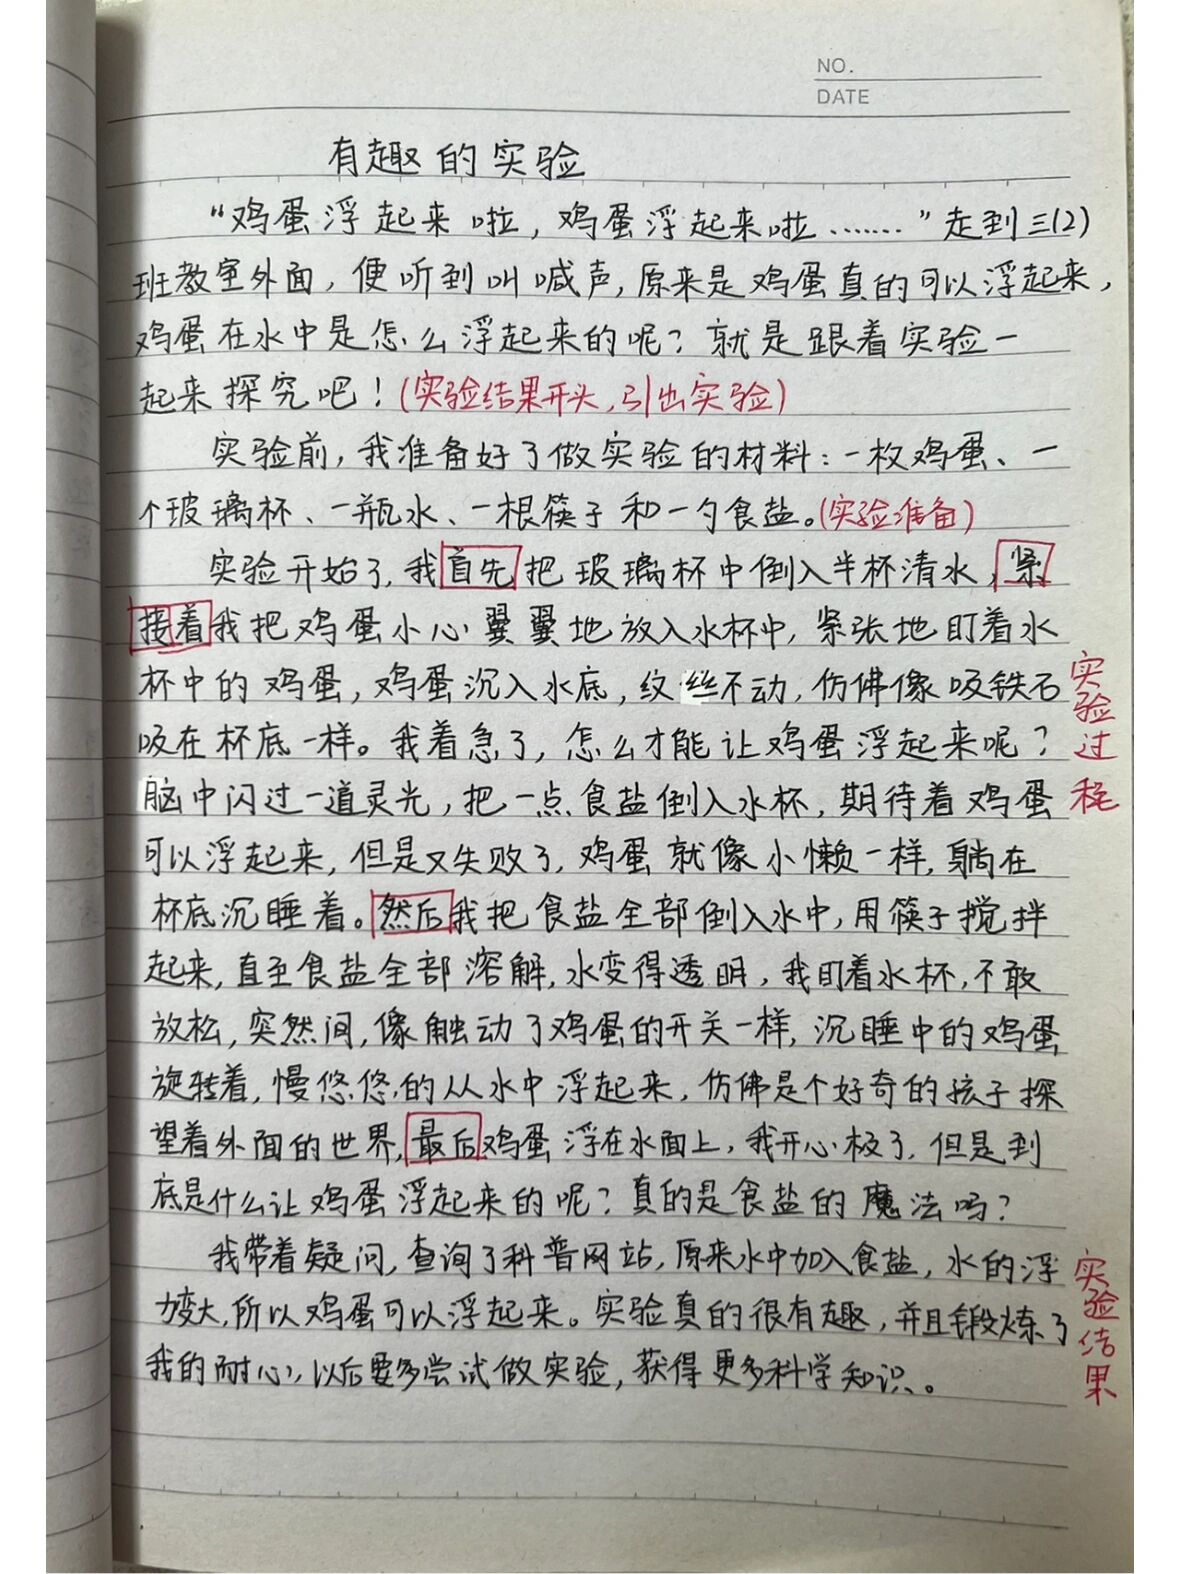 NO.
DATE
有趣的实验
“鸡蛋浮起来啦，鸡蛋浮起来啦……”走到三(2)
班教室外面，便听到叫喊声，原来是鸡蛋真的可以浮起来，
鸡蛋在水中是怎么浮起来的呢？就是跟着实验一
起来探究吧！(实验结果开头，引出实验)
实验前，我准备好了做实验的材料：一枚鸡蛋、一
个玻璃杯、一瓶水、一根筷子和一勺食盐。(实验准备)
实验开始了，我首先把玻璃杯中倒入半杯清水，紧
接着我把鸡蛋小心翼翼地放入水杯中，紧张地盯着水
杯中的鸡蛋，鸡蛋沉入水底，纹丝不动，仿佛像吸铁石
吸在杯底一样。我着急了，怎么才能让鸡蛋浮起来呢？
脑中闪过一道灵光，把一点食盐倒入水杯，期待着鸡蛋
可以浮起来，但是又失败了，鸡蛋就像小懒一样，躺在
杯底沉睡着。然后我把食盐全部倒入水中，用筷子搅拌
起来，直至食盐全部溶解，水变得透明，我盯着水杯，不敢
放松，突然间，像触动了鸡蛋的开关一样，沉睡中的鸡蛋
旋转着，慢悠悠的从水中浮起来，仿佛是个好奇的孩子探
望着外面的世界，最后鸡蛋浮在水面上，我开心极了，但是到
底是什么让鸡蛋浮起来的呢？真的是食盐的魔法吗？
实验过程
我带着疑问，查询了科普网站，原来水中加入食盐，水的浮
力变大，所以鸡蛋可以浮起来。实验真的很有趣，并且锻炼了
我的耐心，以后要多尝试做实验，获得更多科学知识。
实验结果